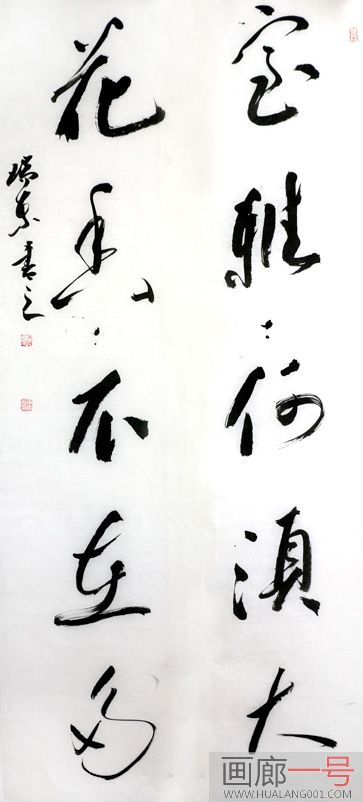 室雅何须大
花香不在多
瑞东书之
画廊一号
WWW.HUALANG001.COM